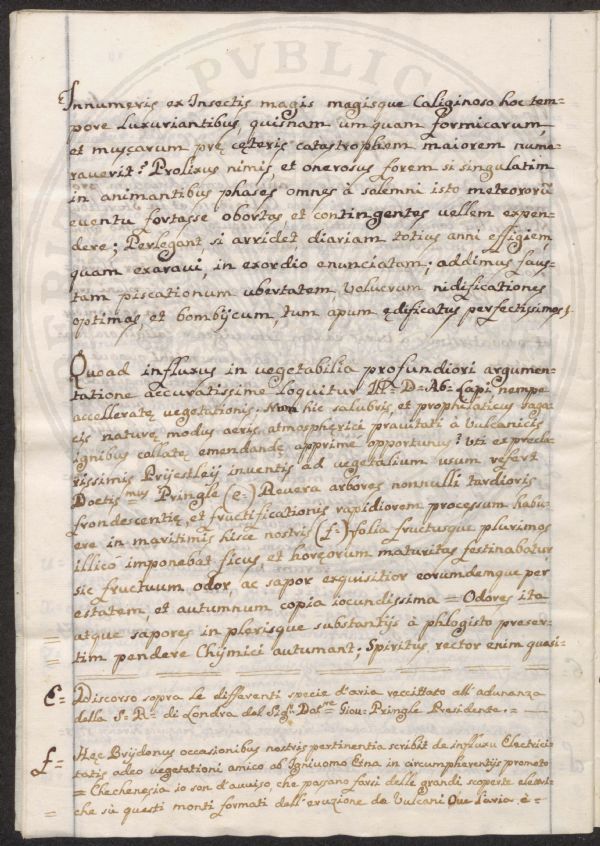 Innumeris ex Insectis magis magisque Caliginoso hoc tem=
pore Luxuriantibus, quisnam umquam formicarum,
et muscarum prę cęteris catastrophem maiorem nume=
raverit? Prolixus nimis, et onerosus forem si singulatim
in animantibus phases omnes à solemni isto meteororũ
eventu fortasse obortas, et contingentes vellem expen=
dere; Perlegant si arridet diariam totius anni effigiem
quam exaravi, in exordio enunciatam; addimus faus=
tam piscationum ubertatem, Volucrum nidificationes
optimas, et bombijcum, tum apum ędificatus perfectissimos;
Quoad influxus in vegetabilia profundiori argumen=
tatione accuratissime loquitur Ill= D= Ab= Lapi, nempe
accelleratę vegetationis. Non hic salubris, et prophilaticus saga=
cis naturę modus aeris, atmospherici pravitati à Vulcanicis
ignibus callatę emendandę apprimé opportunus? Uti ex precla=
rissimis Prijestleij inventis ad vegetalium usum refert
Doctis.mus Pringle (e=) Revera arbores nonnulli tardioris
frondescentię, et fructificationis rapidiorem processum habu=
ere in maritimis hisce nostris (f=) folia fructusque plurimos
illicò imponebat ficus, et horęorum maturitas festinabatur
sic fructuum odor, ac sapor exquisitior eorumdemque per
estatem, et autumnum copia iocundissima = Odores ita
atque sapores in plerisque substantijs à phlogisto preser=
tim pendere Chijmici autumant; Spiritus rector enim quasi=
E= Discorso sopra le differenti specie d'aria reccittato all'adunanza
della S= R= di Londra dal Sig.r Dot.re Giou= Pringle Presidente. =
f= Hęc Brijdonus occasionibus nostris pertinentia scribit de influxu Electrici=
tatis adeo vegetationi amico ab Ignivomo Etna in circumpherentijs promoto
= Chechenesia io son d'avviso, che possano farsi delle grandi scoperte elettri=
che sù questi monti formati dell'eruzione de Vulcani Ove l'aria è=